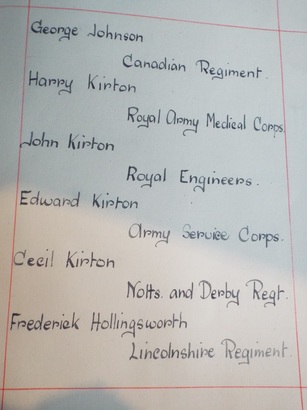 George Johnson
Canadian Regiment.
Harry Kirton
Royal Army Medical Corps.
John Kirton
Royal Engineers.
Edward Kirton
Army Service Corps.
Cecil Kirton
Notts. and Derby Regt.
Frederick Hollingsworth
Lincolnshire Regiment.